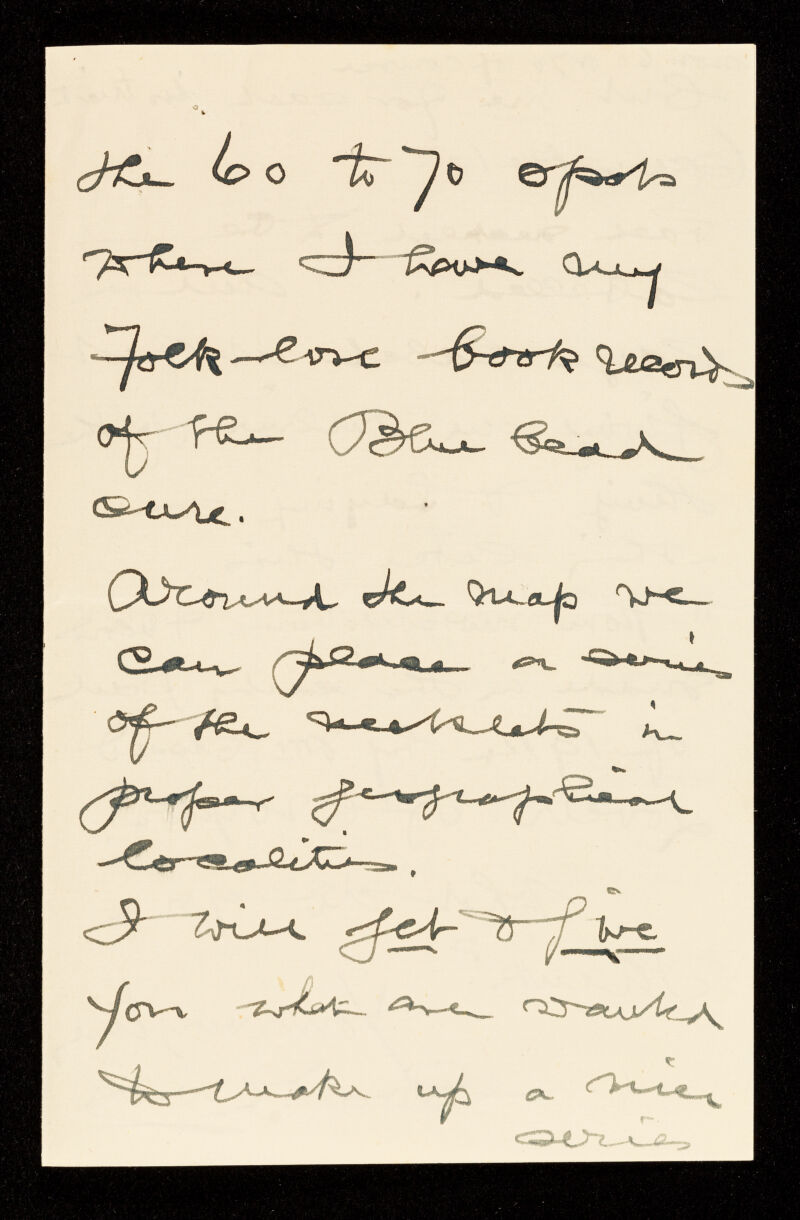 the 60 to 70 spots
where I have my
Folk-lore book records
of the Blue bead
cure.
Around the map we
can place a series
of the necklets in
proper geographical
localities.
I will get & give
you what are wanted
to make up a nice
series